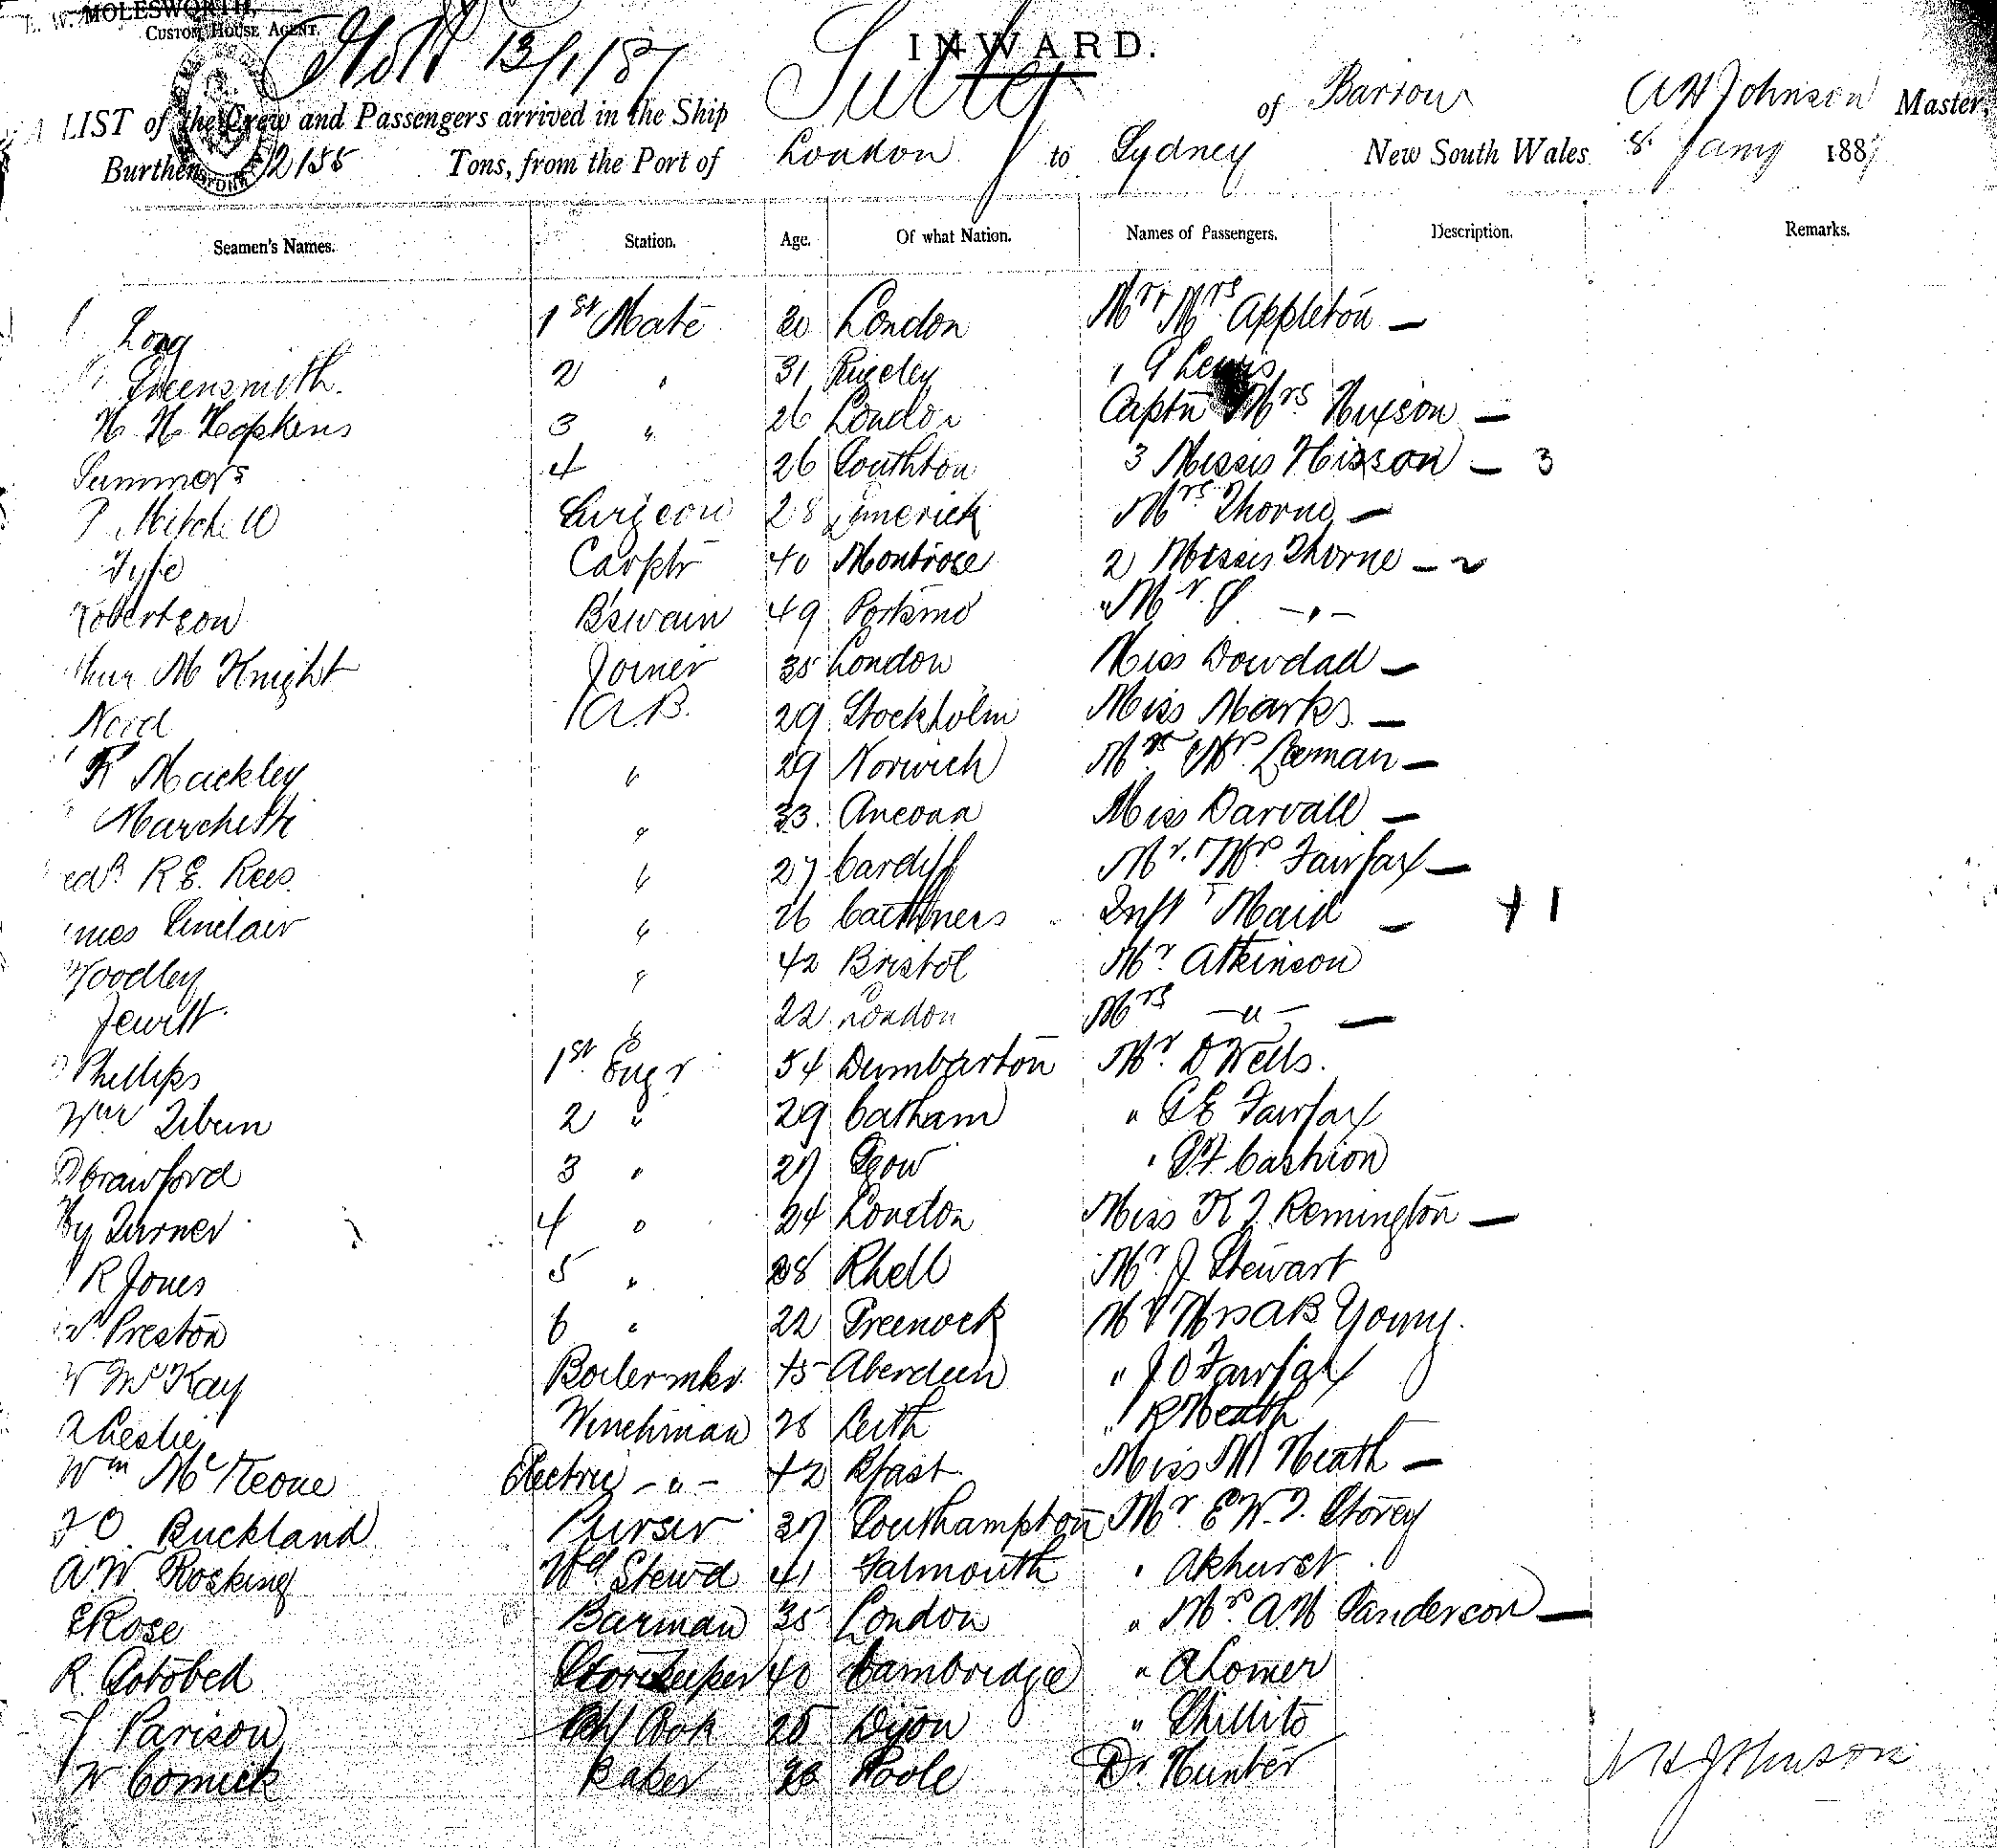 MOLESWORTH,
CUSTOM HOUSE AGENT.
13/1/87
INWARD.
A LIST of the Crew and Passengers arrived in the Ship Sutlej of Barrow A W Johnson Master,
Burthen 2155 Tons, from the Port of London to Sydney New South Wales 8 Jany 1887
Seamen's Names. Station. Age. Of what Nation. Names of Passengers. Description. Remarks.
Long 1st Mate 30 London Mr & Mrs Appleton —
Greensmith. 2 " 31 Rugeley " G Lewis
H H Hopkins 3 " 26 London Captn Mrs Hixson —
Summers 4 26 Southton 3 Misses Hixson — 3
Mitchell Surgeon 28 Limerick Mrs Thorne —
Fyfe Carptr 40 Montrose 2 Misses Thorne — 2
Robertson B'swain 49 Portsmo " Mr —"—
M Knight Joiner 35 London Miss Dowdall —
Nord A.B. 29 Stockholm Miss Marks —
R Mackley " 29 Norwich Mr & Mrs Leeman —
Marchetti " 33 Ancona Miss Darvall —
R E. Rees " 27 Cardiff Mr & Mrs Fairfax —
Sinclair " 26 Caithness Inft & Maid — + 1
Woodley " 42 Bristol Mr Atkinson
Jewitt " 22 London Mrs —"— —
Phillips 1st Engr 54 Dumbarton Mr D Wells.
Wm 2 " 29 Catham " G E Fairfax
Crawford 3 " 27 Cashion
Hy Turner 4 " 24 London Miss K J Remington —
R Jones 5 " 28 Rhell Mr J Stewart
Preston 6 " 22 Greenock Mr & Mrs A B Young.
W McKay Boilermkr 45 Aberdeen " J O Fairfax
Leslie Winchman 28 Leith " R Heath
Wm McKeone Electric —"— 42 Bfast Miss M Heath —
F O. Buckland Purser 37 Southampton Mr E W. F. Storey
A W. Rosking Hd Stew'd 41 Falmouth " Akhurst
E Rose Barman 35 London " Mrs A H Sanderson —
R Gotobed Storekeeper 40 Cambridge " A Lomer
Parison Chf Cook 25 Dijon " Shillito
W Comick Baker 28 Poole Dr Hunter
A W Johnson